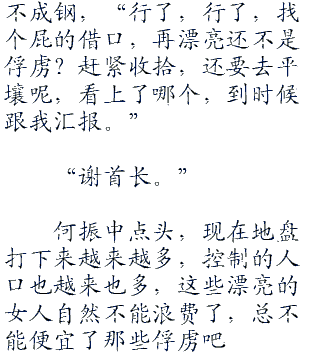 不成钢，“行了，行了，找
个屁的借口，再漂亮还不是
俘虏？赶紧收拾，还要去平
壤呢，看上了哪个，到时候
跟我汇报。”
“谢首长。”
何振中点头，现在地盘
打下来越来越多，控制的人
口也越来也多，这些漂亮的
女人自然不能浪费了，总不
能便宜了那些俘虏吧